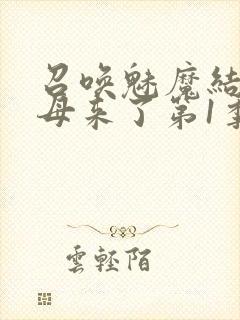 召喚魅魔結
母来了第1季
雲輕陌